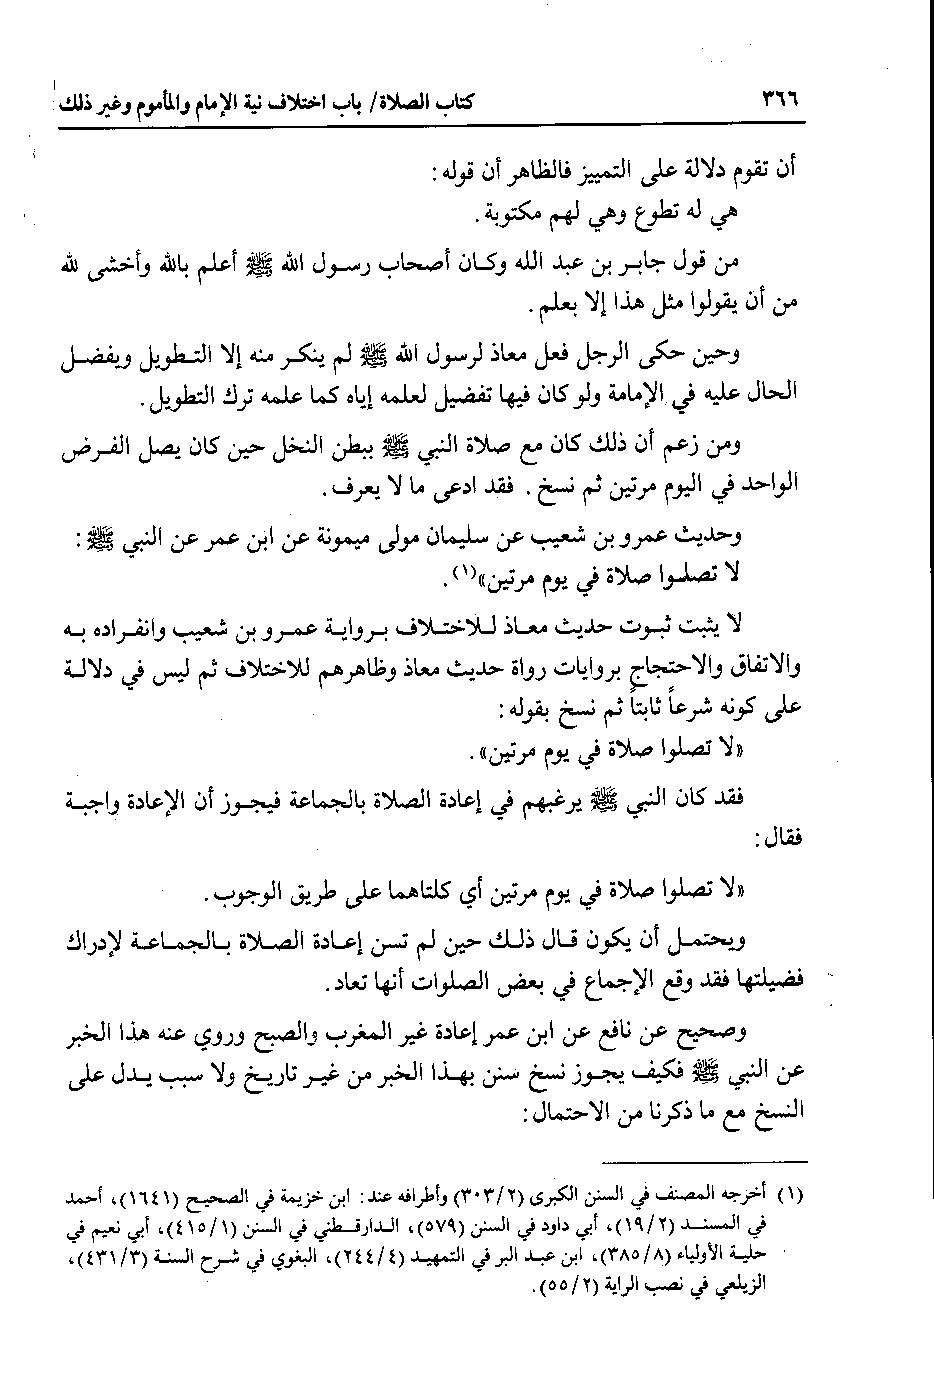 ٣٦٦ كتاب الصلاة/ باب اختلاف نية الإمام والمأموم وغير ذلك
أن تقوم دلالة على التمييز فالظاهر أن قوله :
هي له تطوع وهي لهم مكتوبة .
من قول جابر بن عبد الله وكان أصحاب رسول الله ﷺ أعلم بالله وأخشى لله
من أن يقولوا مثل هذا إلا بعلم .
وحين حكى الرجل فعل معاذ لرسول الله ﷺ لم ينكر منه إلا التطويل ويفضل
الحال عليه في الإمامة ولو كان فيها تفضيل لعلمه إياه كما علمه ترك التطويل .
ومن زعم أن ذلك كان مع صلاة النبي ﷺ ببطن النخل حين كان يصل الفرض
الواحد في اليوم مرتين ثم نسخ . فقد ادعى ما لا يعرف .
وحديث عمرو بن شعيب عن سليمان مولى ميمونة عن ابن عمر عن النبي ﷺ :
لا تصلوا صلاة في يوم مرتين»(١) .
لا يثبت ثبوت حديث معاذ للاختلاف برواية عمرو بن شعيب وانفراده به
والاتفاق والاحتجاج بروايات رواة حديث معاذ وظاهرهم للاختلاف ثم ليس في دلالة
على كونه شرعاً ثابتاً ثم نسخ بقوله :
«لا تصلوا صلاة في يوم مرتين» .
فقد كان النبي ﷺ يرغبهم في إعادة الصلاة بالجماعة فيجوز أن الإعادة واجبة
فقال :
«لا تصلوا صلاة في يوم مرتين أي كلتاهما على طريق الوجوب .
ويحتمل أن يكون قال ذلك حين لم تسن إعادة الصلاة بالجماعة لإدراك
فضيلتها فقد وقع الإجماع في بعض الصلوات أنها تعاد .
وصحيح عن نافع عن ابن عمر إعادة غير المغرب والصبح وروي عنه هذا الخبر
عن النبي ﷺ فكيف يجوز نسخ سنن بهذا الخبر من غير تاريخ ولا سبب يدل على
النسخ مع ما ذكرنا من الاحتمال :
(١) أخرجه المصنف في السنن الكبرى (٣٠٣/٢) وأطرافه عند : ابن خزيمة في الصحيح (١٦٤١)، أحمد
في المسند (١٩/٢)، أبي داود في السنن (٥٧٩)، الدارقطني في السنن (٤١٥/١)، أبي نعيم في
حلية الأولياء (٣٨٥/٨)، ابن عبد البر في التمهيد (٢٤٤/٤)، البغوي في شرح السنة (٤٣١/٣)،
الزيلعي في نصب الراية (٥٥/٢) .